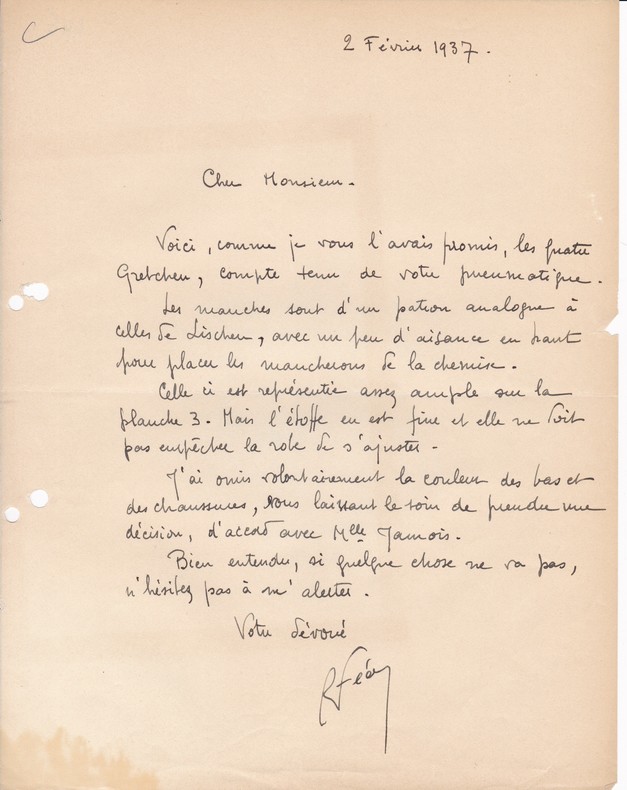 2 Février 1937.
Cher Monsieur.
Voici, comme je vous l'avais promis, les quatre
Gretchen, compte tenu de votre pneumatique.
Les manches sont d'un patron analogue à
celles de Lischen, avec un peu d'aisance en haut
pour placer les mancherons de la chemise.
Celle ci est représentée assez ample sur la
planche 3. Mais l'étoffe en est fine et elle ne doit
pas empêcher la robe de s'ajuster.
J'ai omis volontairement la couleur des bas et
des chaussures, vous laissant le soin de prendre une
décision, d'accord avec Mlle Jamois.
Bien entendu, si quelque chose ne va pas,
n'hésitez pas à m'alerter.
Votre dévoué